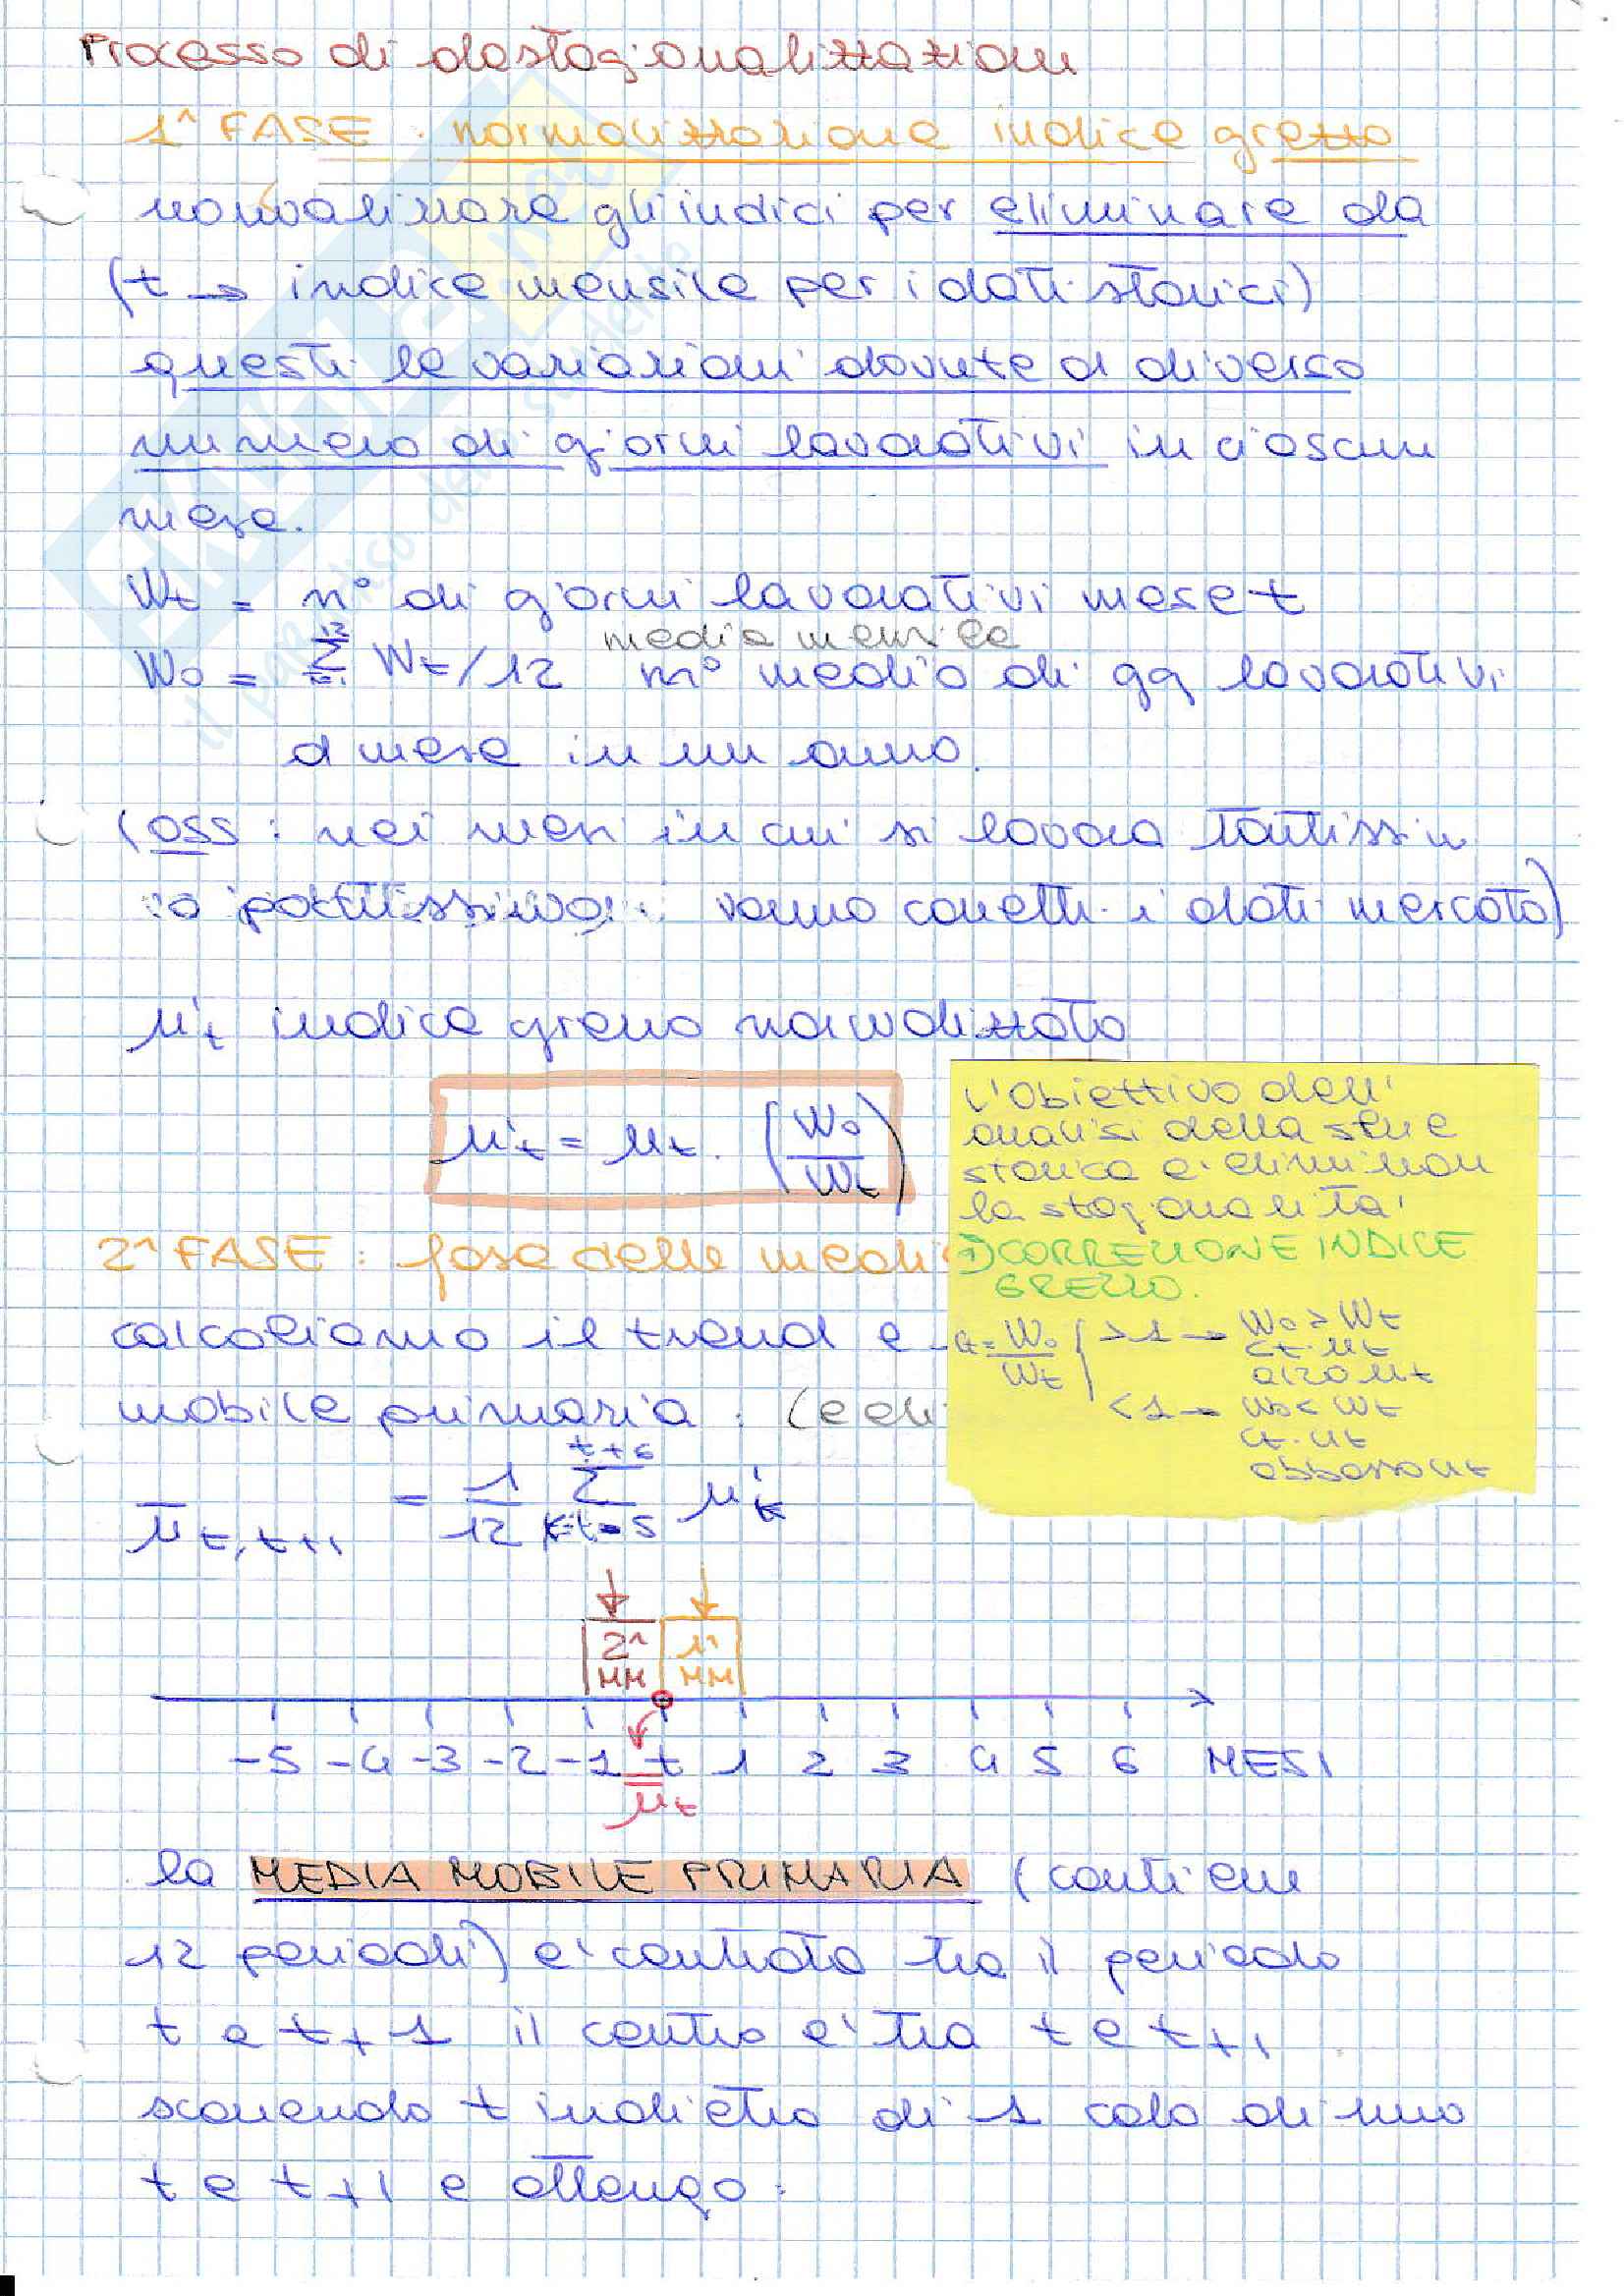 Processo di destagionalizzazione
1^ FASE : normalizzazione indice grezzo
normalizzare gli indici per eliminare da
(t → indice mensile per i dati storici)
questi le variazioni dovute a diverso
numero di giorni lavorativi in ciascun
mese.
Wt = n° di giorni lavorativi mese t
media mensile
W0 = Σ Wt/12 n° medio di gg lavorativi
al mese in un anno.
(oss : nei mesi in cui si lavora tantissim
o pochissimo: vanno corretti i dati mercato)
μ't indice grezzo normalizzato
μ't = μt · (W0/Wt)
L'obiettivo dell'
analisi della serie
storica e' eliminare
la stagionalita'
1) CORREZIONE INDICE
GREZZO.
ct = W0/Wt
>1 → W0 > Wt
ct · μt
alzo μt
<1 → W0 < Wt
ct · μt
abbasso μt
2^ FASE : fase delle medi
calcoliamo il trend e
mobile primaria :
μ̄t,t+1 = 1/12 Σ(k=t-5, t+6) μ'k
2^ MM 1^ MM
-5 -4 -3 -2 -1 t 1 2 3 4 5 6 MESI
μ̄t
la MEDIA MOBILE PRIMARIA (contiene
12 periodi) e' centrata tra il periodo
t e t+1 il centro e' tra t e t+1
scorrendo t indietro di 1 calo di uno
t e t+1 e ottengo :
il paradiso dello studente